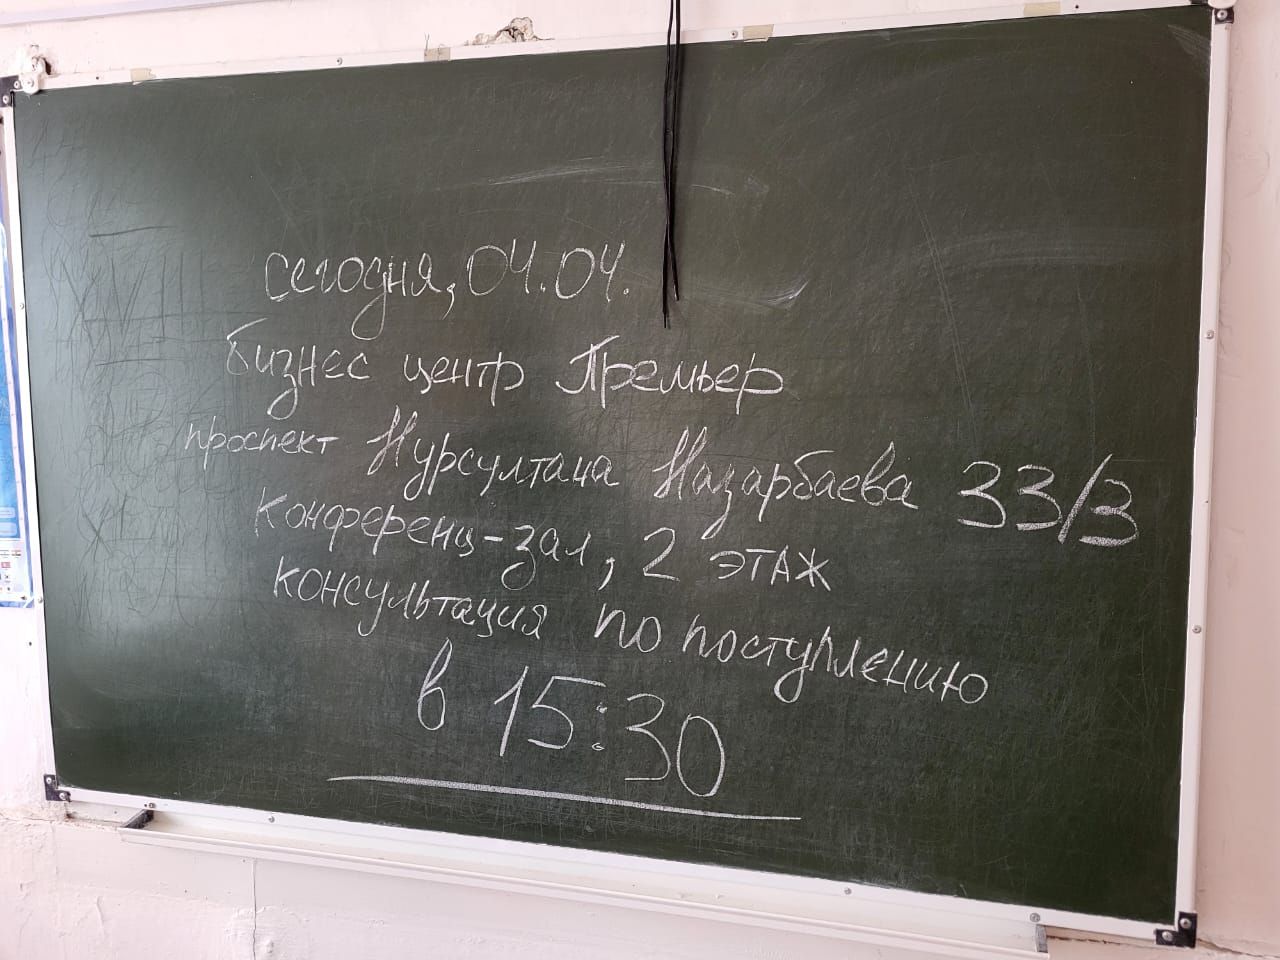 сегодня, 04.04.
бизнес центр Премьер
проспект Нурсултана Назарбаева 33/3
конференц-зал, 2 этаж
консультация по поступлению
в 15:30